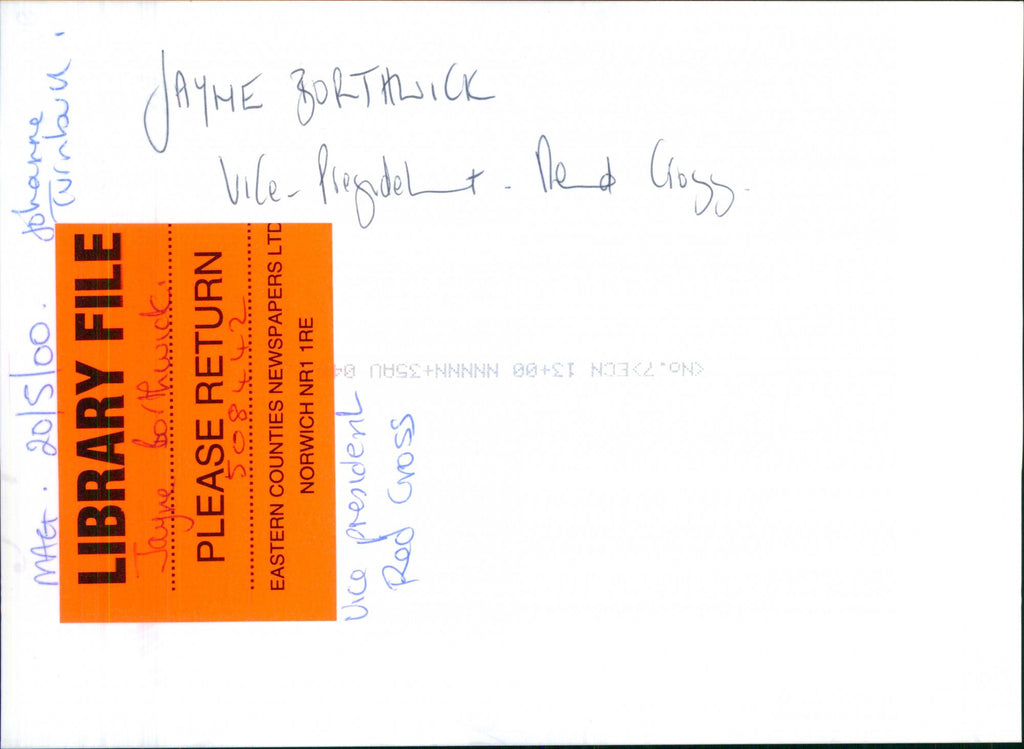 JAYME BORTHWICK
Vice-President. Red Cross.
MAG. 20/5/00. Johanne
Turnbull.
LIBRARY FILE
Jayne borthwick.
PLEASE RETURN
508442
EASTERN COUNTIES NEWSPAPERS LTD
NORWICH NR1 1RE
Vice president
Red Cross
<No.7>ECN 13+00 NNNNN+35AU 04